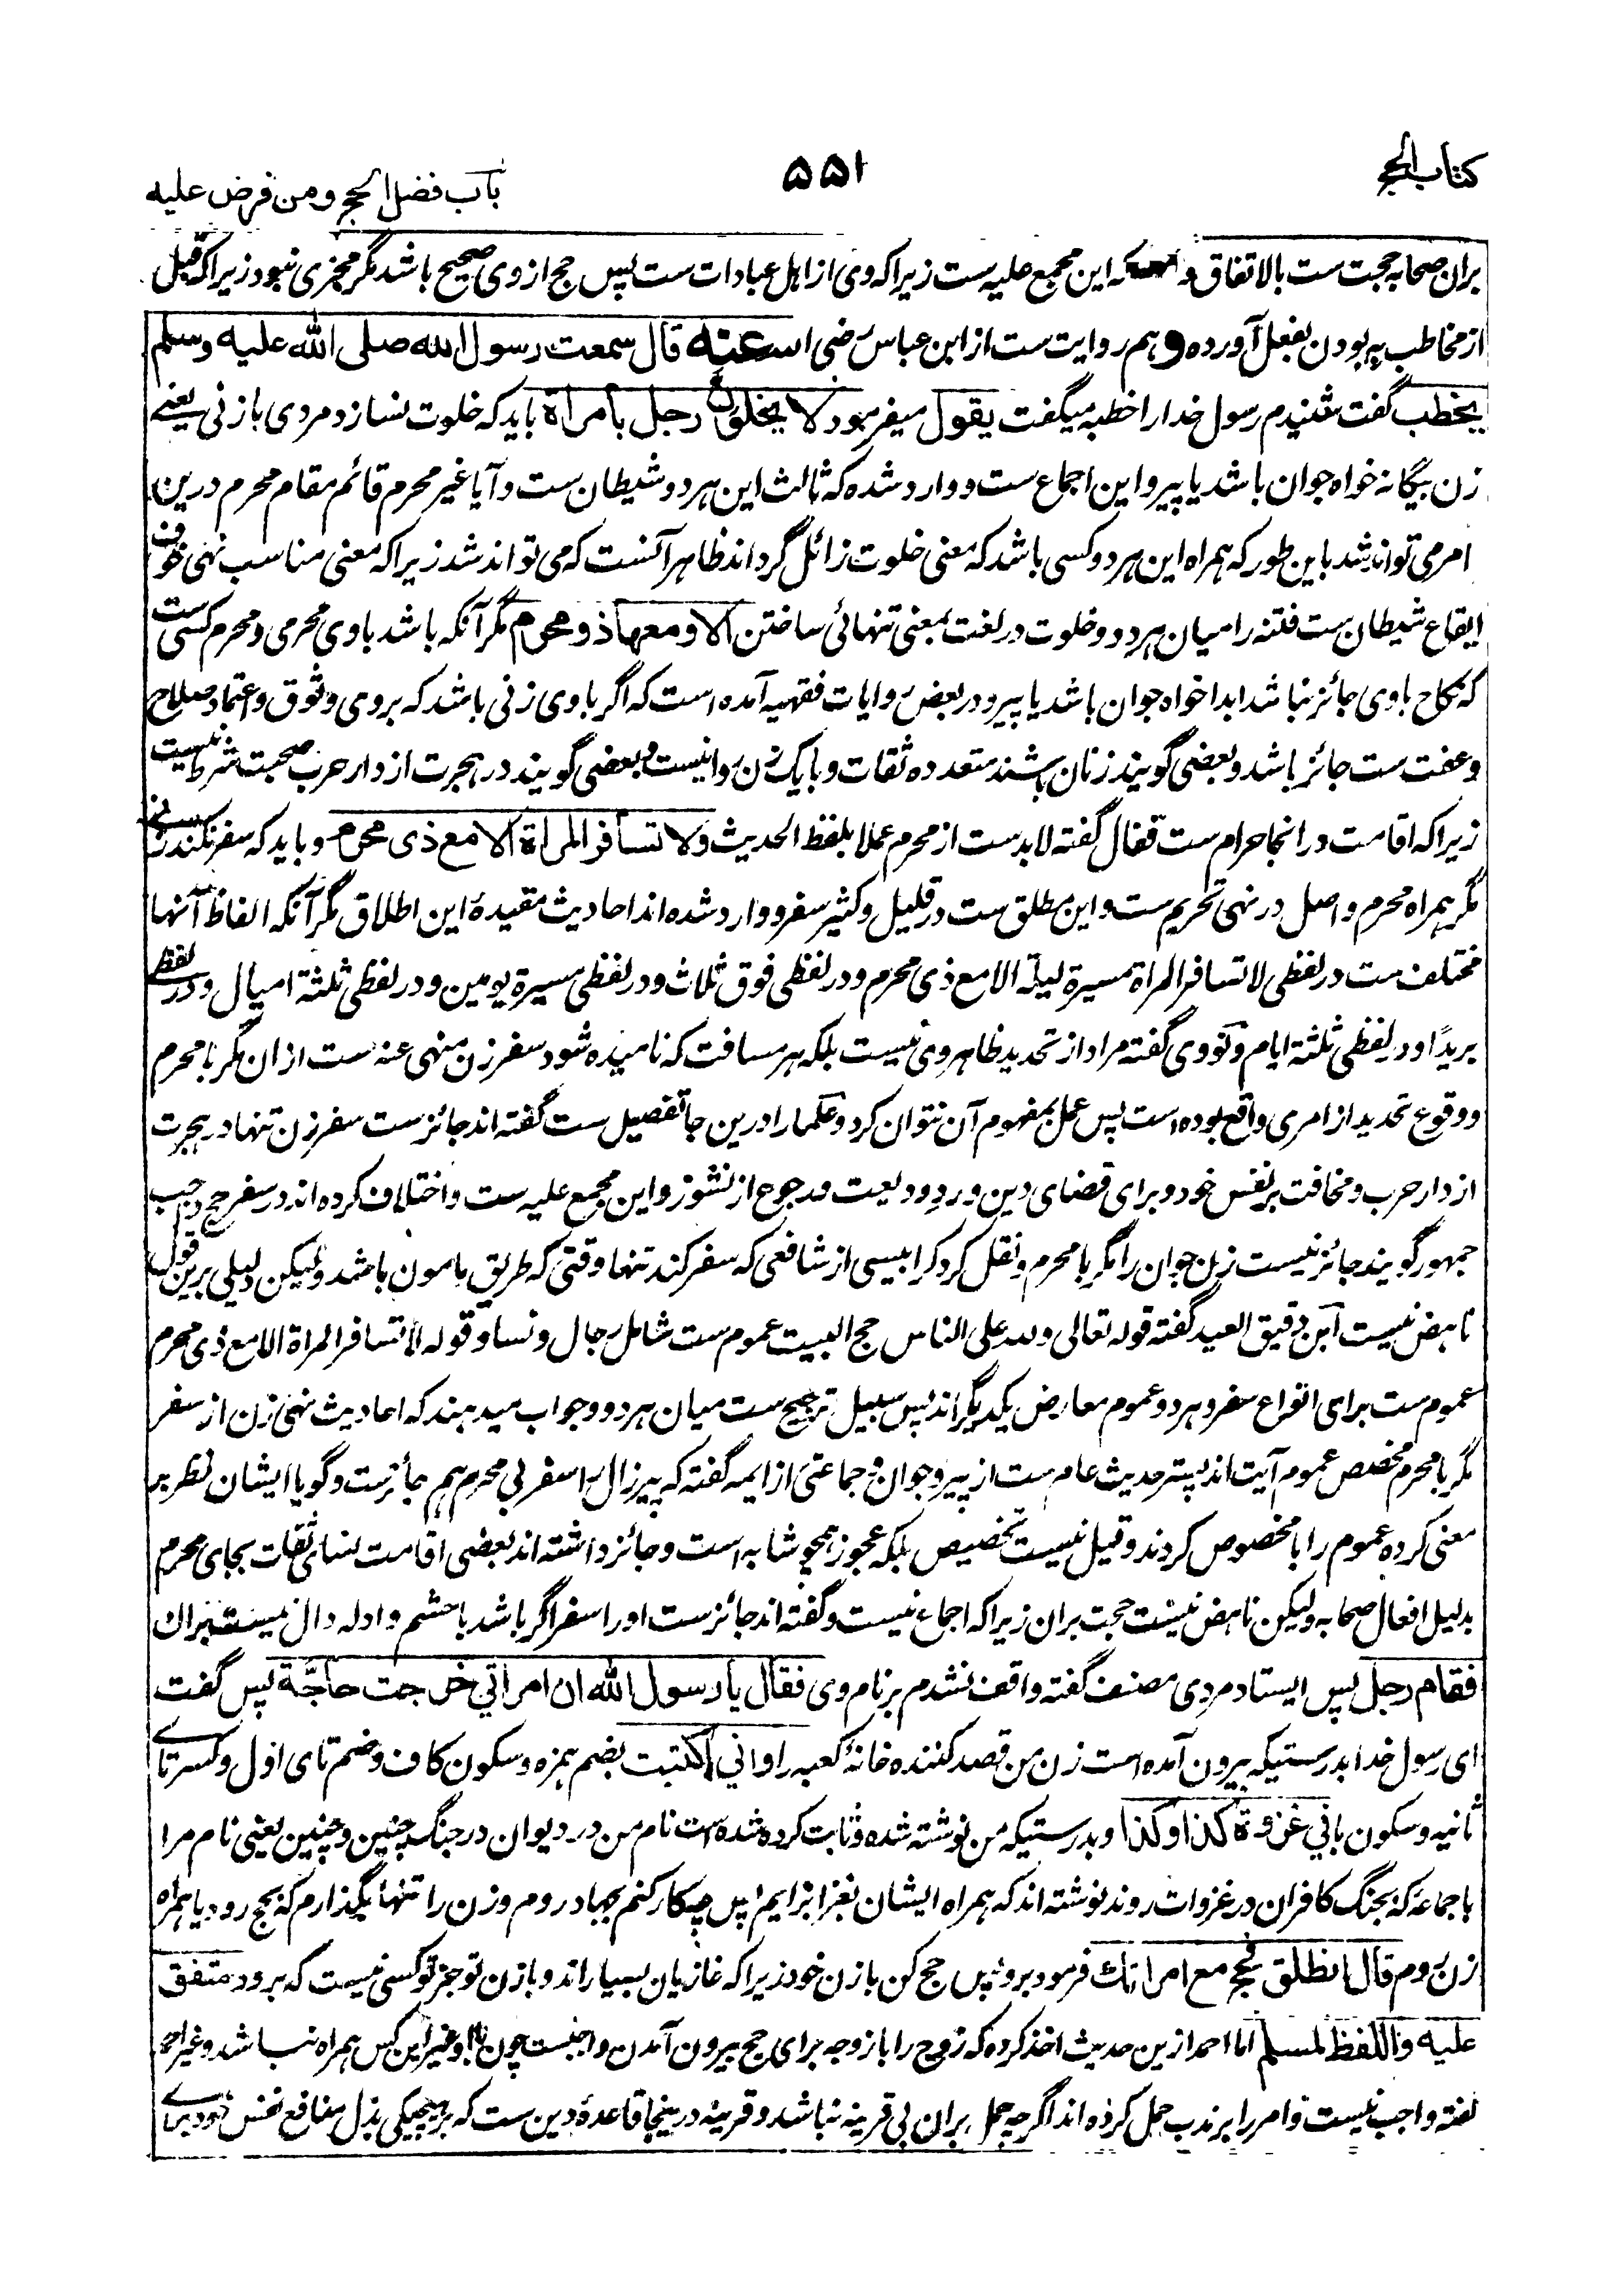 کتاب الحج
۵۵۱
باب فضل الحج ومن فرض علیه
بران صحابه حجت ست بالاتفاق که این مجمع علیه ست زیراکه وی از اهل عبادات ست پس حج از وی صحیح باشد مگر مجزی نبود زیراکه قبل
از مخاطب به بودن بفعل آورده وهم روایت ست از ابن عباس رضی الله عنه قال سمعت رسول الله صلی الله علیه وسلم
یخطب گفت شنیدم رسول خدا را خطبه میگفت یقول میفرمود لا یخلون رجل بامرأة باید که خلوت نسازد مردی با زنی یعنے
زن بیگانه خواه جوان باشد یا پیر و این اجماع ست و وارد شده که ثالث این هر دو شیطان ست و آیا غیر محرم قائم مقام محرم درین
امر می تواند شد باین طور که همراه این هر دو کسی باشد که معنی خلوت زائل گرداند ظاهر آنست که می تواند شد زیراکه معنی مناسب نهی خوف
ایقاع شیطان ست فتنه را میان هر دو و خلوت در لغت بمعنی تنهائی ساختن الا ومعها ذو محرم مگر آنکه باشد با وی محرمی و محرم کسی ست
که نکاح با وی جائز نباشد ابدا خواه جوان باشد یا پیر و در بعض روایات فقهیه آمده است که اگر با وی زنی باشد که بر وی وثوق و اعتماد صلاح
و عفت ست جائز باشد و بعضی گویند زنان باشند متعدده ثقات و با یک زن روا نیست و بعضی گویند در هجرت از دار حرب صحبت شرط نیست
زیراکه اقامت در انجا حرام ست قفال گفته لابدست از محرم عملا بلفظ الحدیث ولا تسافر المرأة الا مع ذی محرم و باید که سفر نکند زنے
مگر همراه محرم و اصل در نهی تحریم ست و این مطلق ست در قلیل و کثیر سفر و وارد شده اند احادیث مقیدهٔ این اطلاق مگر آنکه الفاظ آنها
مختلف ست در لفظی لا تسافر المراة مسیرة لیلة الا مع ذی محرم و در لفظی فوق ثلاث و در لفظی مسیرة یومین و در لفظی ثلثة امیال و در لفظے
بریدا و در لفظی ثلثة ایام و نووی گفته مراد از تحدید ظاهر وی نیست بلکه هر مسافت که نامیده شود سفر زن منهی عنه ست از ان مگر با محرم
و وقوع تحدید از امری واقع بوده است پس عمل بمفهوم آن نتوان کرد و علما را درین جا تفصیل ست گفته اند جائز ست سفر زن تنها در هجرت
از دار حرب و مخافت بر نفس خود و برای قضای دین و رد ودیعت و رجوع از نشوز و این مجمع علیه ست و اختلاف کرده اند در سفر حج واجب
جمهور گویند جائز نیست زن جوان را مگر با محرم و نقل کرد کرابیسی از شافعی که سفر کند تنها وقتی که طریق مامون باشد ولیکن دلیلی برین قول
ناهض نیست ابن دقیق العید گفته قوله تعالی ولله علی الناس حج البیت عموم ست شامل رجال و نسا و قوله لا تسافر المراة الا مع ذی محرم
عموم ست برای انواع سفر و هر دو عموم معارض یکدیگر اند پس سبیل ترجیح ست میان هر دو و جواب میدهند که احادیث نهی زن از سفر
مگر با محرم مخصص عموم آیت اند پستر حدیث عام ست از پیر و جوان و جماعتی از ایمه گفته که پیر زال را سفر بی محرم هم جائز ست و گویا ایشان نظر بر
معنی کرده عموم را با مخصوص کردند و قیل نیست تخصیص بلکه عجوز همچو شابه است و جائز داشته اند بعضی اقامت نسای ثقات بجای محرم
بدلیل افعال صحابه ولیکن ناهض نیست حجت بران زیراکه اجماع نیست و گفته اند جائز ست او را سفر اگر باشد با حشم و ادله دال نیست بران
فقام رجل پس ایستاد مردی مصنف گفته واقف نشدم بر نام وی فقال یا رسول الله ان امرأتي خرجت حاجّة پس گفت
ای رسول خدا بدرستیکه بیرون آمده است زن من قصد کننده خانهٔ کعبه را واني اكتتبت بضم همزه و سکون کاف و ضم تای اول و کسر تاے
ثانیه و سکون با في غزوة كذا وكذا و بدرستیکه من نوشته شده و ثابت کرده شده است نام من در دیوان در جنگ چنین و چنین یعنی نام مرا
با جماعه که بجنگ کافران در غزوات روند نوشته اند که همراه ایشان بغزا برایم پس چکار کنم بجهاد روم و زن را تنها بگذارم که بحج رود یا همراه
زن بروم قال انطلق فحج مع امرأتك فرمود برو پس حج کن با زن خود زیراکه غازیان بسیار اند و با زن تو جز تو کسی نیست که برود متفق
علیه واللفظ لمسلم اما احمد ازین حدیث اخذ کرده که زوج را با زوجه برای حج بیرون آمدن واجبست چون با او غیر این کس همراه نباشد و غیر احمد
گفته واجب نیست و امر را بر ندب حمل کرده اند اگر چه حمل بران بی قرینه نباشد و قرینه درینجا قاعدهٔ دین ست که بر هیچیکی بذل منافع نفس خود برای